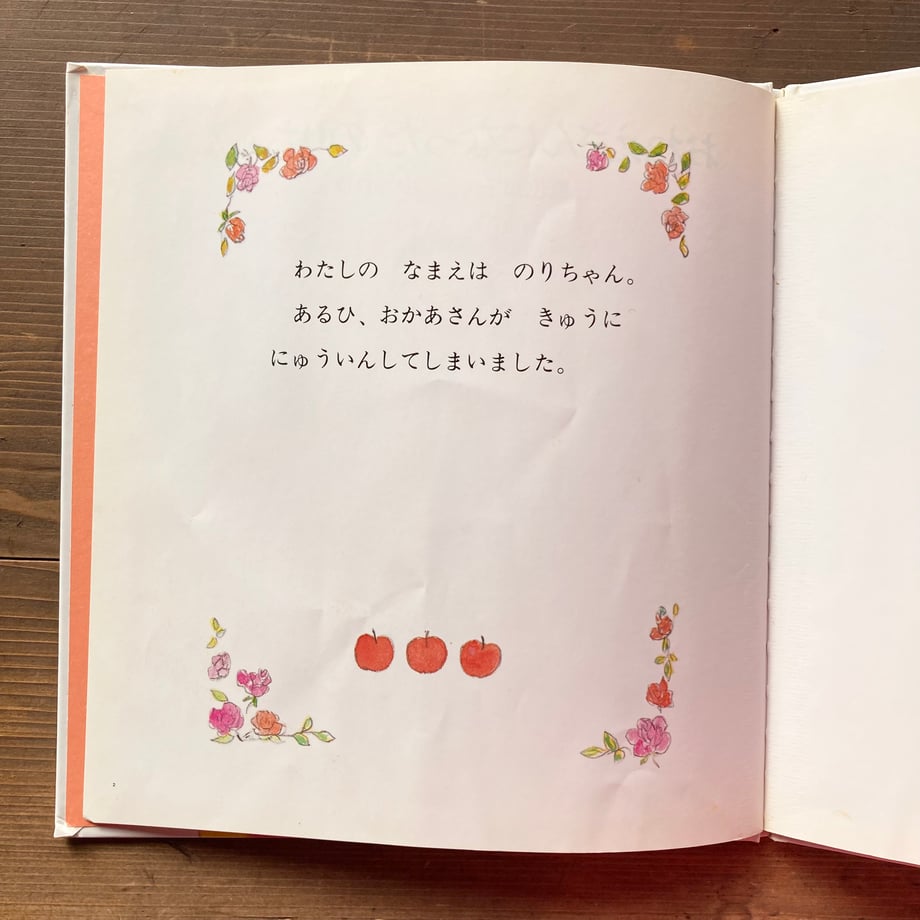 わたしの　なまえは　のりちゃん。
あるひ、おかあさんが　きゅうに
にゅういんしてしまいました。
2